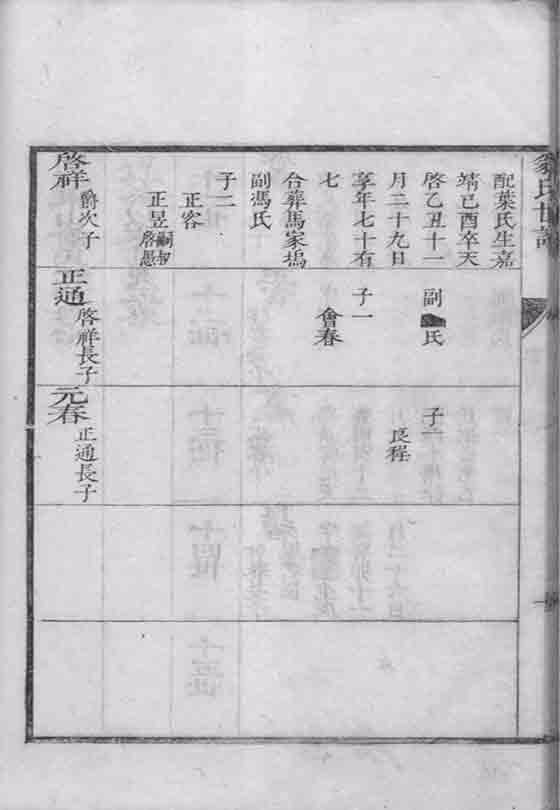 氏世譜
配葉氏生嘉
靖己酉卒天
啓乙丑十一
月二十九日
享年七十有
七
合葬馬家塢
副馮氏
子二
正容
正昱嗣叔啓愚
啓祥爵次子
副氏
子一
會春
正通啓祥長子
子一
良程
元春正通長子